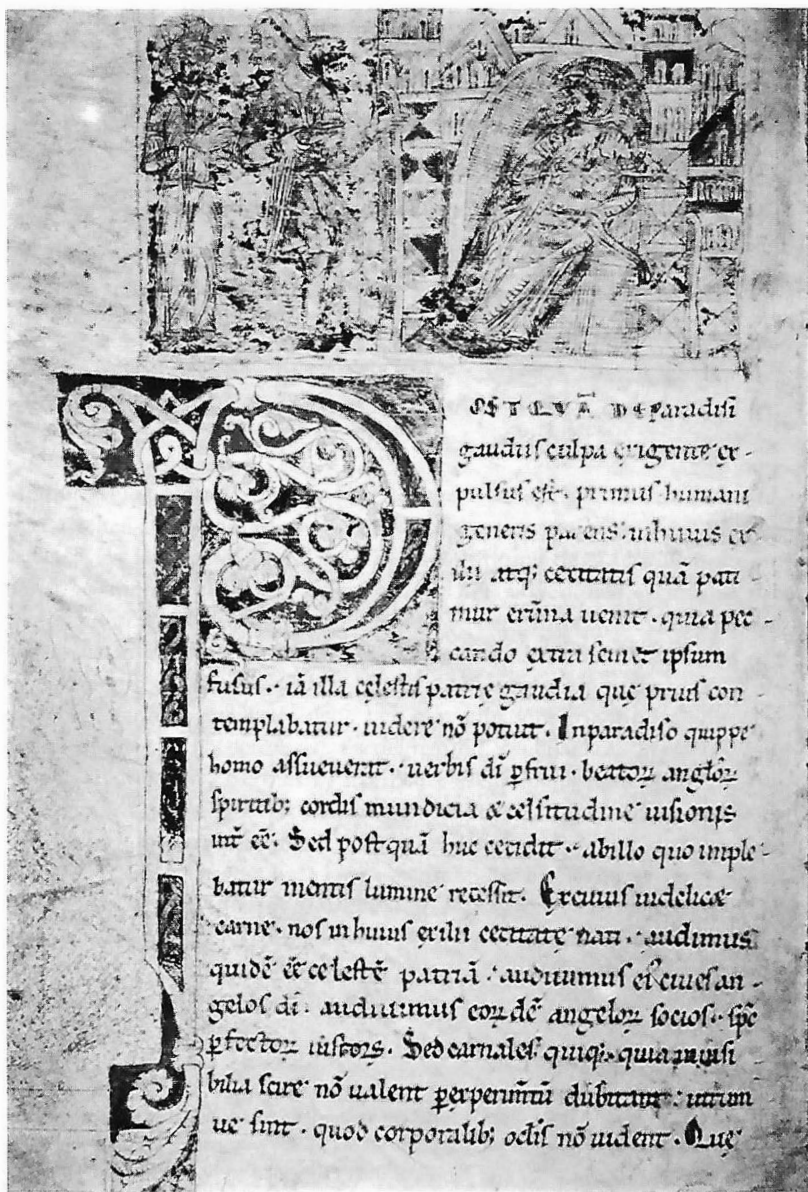 POSTQVĀ DE paradisi
gaudiis culpa exigente ex-
pulsus est. primus humani
generis parens. in huius ex
ilii atq; cecitatis quā pati-
mur erūna uenit. quia pec-
cando extra semet ipsum
fusus. iā illa celestis patrię gaudia que prius con-
templabatur. uidere nō potuit. In paradiso quippe
homo assueuerat. uerbis dī ꝑfrui. beatoꝝ angłoꝝ
spiritib; cordis mundicia & celsitudine uisionis
int̄ eē. Sed postquā huc cecidit. ab illo quo imple-
batur mentis lumine recessit. Ex cuius uidelicæ
carne. nos in huius exilii cecitate nati. audimus
quidē eē celestē patriā. audiuimus ei cives an-
gelos dī. audiuimus eoꝝdē angeloꝝ socios. spc̄
ꝑfectoꝝ iustoꝝ. Sed carnales quiq;. quia inuisi
bilia scire nō ualent ꝑ experim̄tū dubitant. utrum
ne sint. quod corporalib; oclis nō uident. Quę